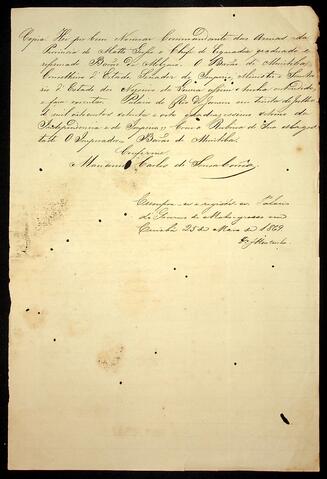 Copia Hei por bem Nomear Commandante das Armas da
Provincia de Matto Grosso o Chefe de Esquadra graduado e
refirmado Barão de Melgaço. O Barão de Muritiba
Conselheiro d'Estado Senador do Imperio, Ministro e Secreta
rio d'Estado dos Negocios da Guerra assim o tenha entendido,
e faça executar. Palacio do Rio de Janeiro em de
mil oitocentos sessenta e oito, quadragesimo setimo da
Independencia e do Imperio, Com a Rubrica de Sua Magestade
O Imperador Barão de Muritiba.
Conforme
Marianno Carlos de Souza Corrêa
Cumpra-se e registre-se. Palacio
do Governo de Mato-grosso em
Cuiabá 25 de Maio de 1869